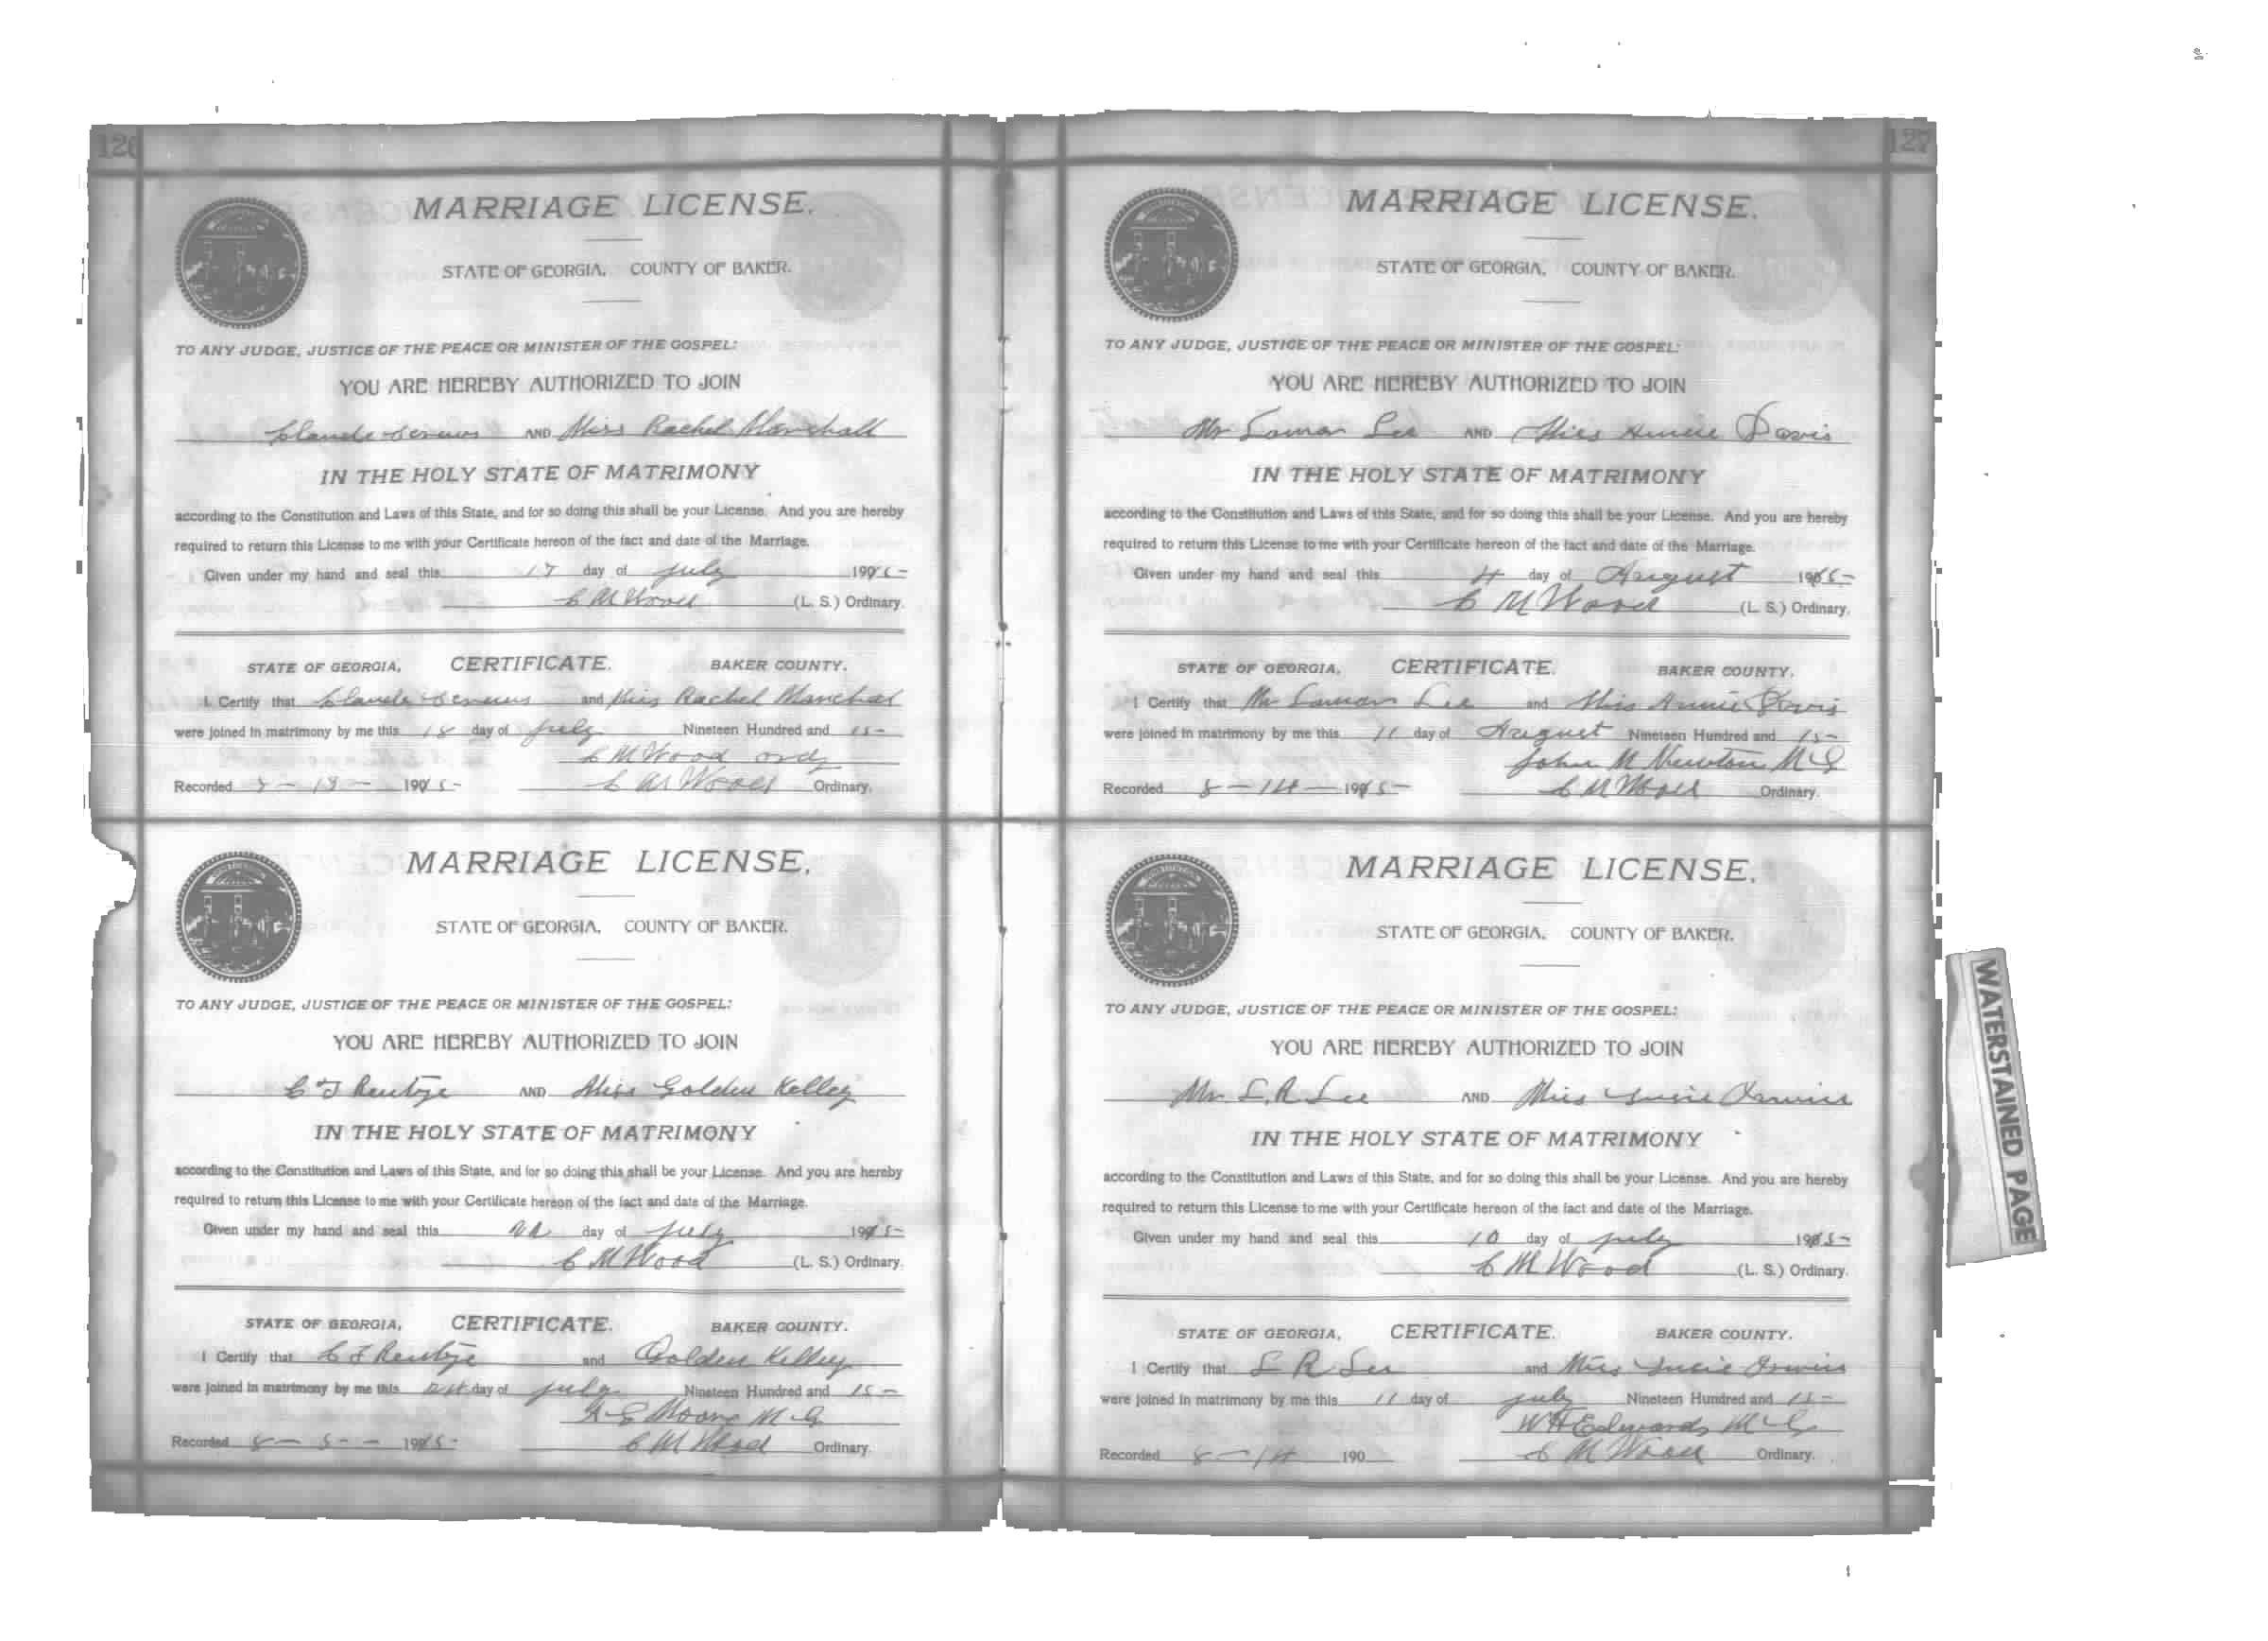 126
MARRIAGE LICENSE.
STATE OF GEORGIA. COUNTY OF BAKER.
TO ANY JUDGE, JUSTICE OF THE PEACE OR MINISTER OF THE GOSPEL:
YOU ARE HEREBY AUTHORIZED TO JOIN
Claude AND Miss Rachel Marchall
IN THE HOLY STATE OF MATRIMONY
according to the Constitution and Laws of this State, and for so doing this shall be your License. And you are hereby
required to return this License to me with your Certificate hereon of the fact and date of the Marriage.
Given under my hand and seal this 17 day of July 1915
C M Wood (L. S.) Ordinary.
STATE OF GEORGIA, CERTIFICATE. BAKER COUNTY.
I Certify that Claude and Miss Rachel Marchal
were joined in matrimony by me this 18 day of July Nineteen Hundred and 15
C M Wood ordy
Recorded 1915 C M Wood Ordinary.
MARRIAGE LICENSE.
STATE OF GEORGIA. COUNTY OF BAKER.
TO ANY JUDGE, JUSTICE OF THE PEACE OR MINISTER OF THE GOSPEL:
YOU ARE HEREBY AUTHORIZED TO JOIN
AND Miss Golden Kelley
IN THE HOLY STATE OF MATRIMONY
according to the Constitution and Laws of this State, and for so doing this shall be your License. And you are hereby
required to return this License to me with your Certificate hereon of the fact and date of the Marriage.
Given under my hand and seal this day of July 1915
C M Wood (L. S.) Ordinary.
STATE OF GEORGIA, CERTIFICATE. BAKER COUNTY.
I Certify that and Golden Kelley
were joined in matrimony by me this day of July Nineteen Hundred and 15
Moore M G
Recorded 8 - 5 - 1915 C M Wood Ordinary.
127
MARRIAGE LICENSE.
STATE OF GEORGIA. COUNTY OF BAKER.
TO ANY JUDGE, JUSTICE OF THE PEACE OR MINISTER OF THE GOSPEL:
YOU ARE HEREBY AUTHORIZED TO JOIN
Mr Lamar Lee AND Miss Annie Davis
IN THE HOLY STATE OF MATRIMONY
according to the Constitution and Laws of this State, and for so doing this shall be your License. And you are hereby
required to return this License to me with your Certificate hereon of the fact and date of the Marriage.
Given under my hand and seal this 4 day of August 1915
C M Wood (L. S.) Ordinary.
STATE OF GEORGIA, CERTIFICATE. BAKER COUNTY.
I Certify that Mr Lamar Lee and Miss Annie Davis
were joined in matrimony by me this 11 day of August Nineteen Hundred and 15
John M Newton M G
Recorded 8 - 14 - 1915 C M Wood Ordinary.
MARRIAGE LICENSE.
STATE OF GEORGIA. COUNTY OF BAKER.
TO ANY JUDGE, JUSTICE OF THE PEACE OR MINISTER OF THE GOSPEL:
YOU ARE HEREBY AUTHORIZED TO JOIN
Mr L. R. Lee AND Miss
IN THE HOLY STATE OF MATRIMONY
according to the Constitution and Laws of this State, and for so doing this shall be your License. And you are hereby
required to return this License to me with your Certificate hereon of the fact and date of the Marriage.
Given under my hand and seal this 10 day of July 1915
C M Wood (L. S.) Ordinary.
STATE OF GEORGIA, CERTIFICATE. BAKER COUNTY.
I Certify that L R Lee and Miss
were joined in matrimony by me this 11 day of July Nineteen Hundred and 15
W H Edwards M G
Recorded 8 - 14 190 C M Wood Ordinary.
WATERSTAINED PAGE